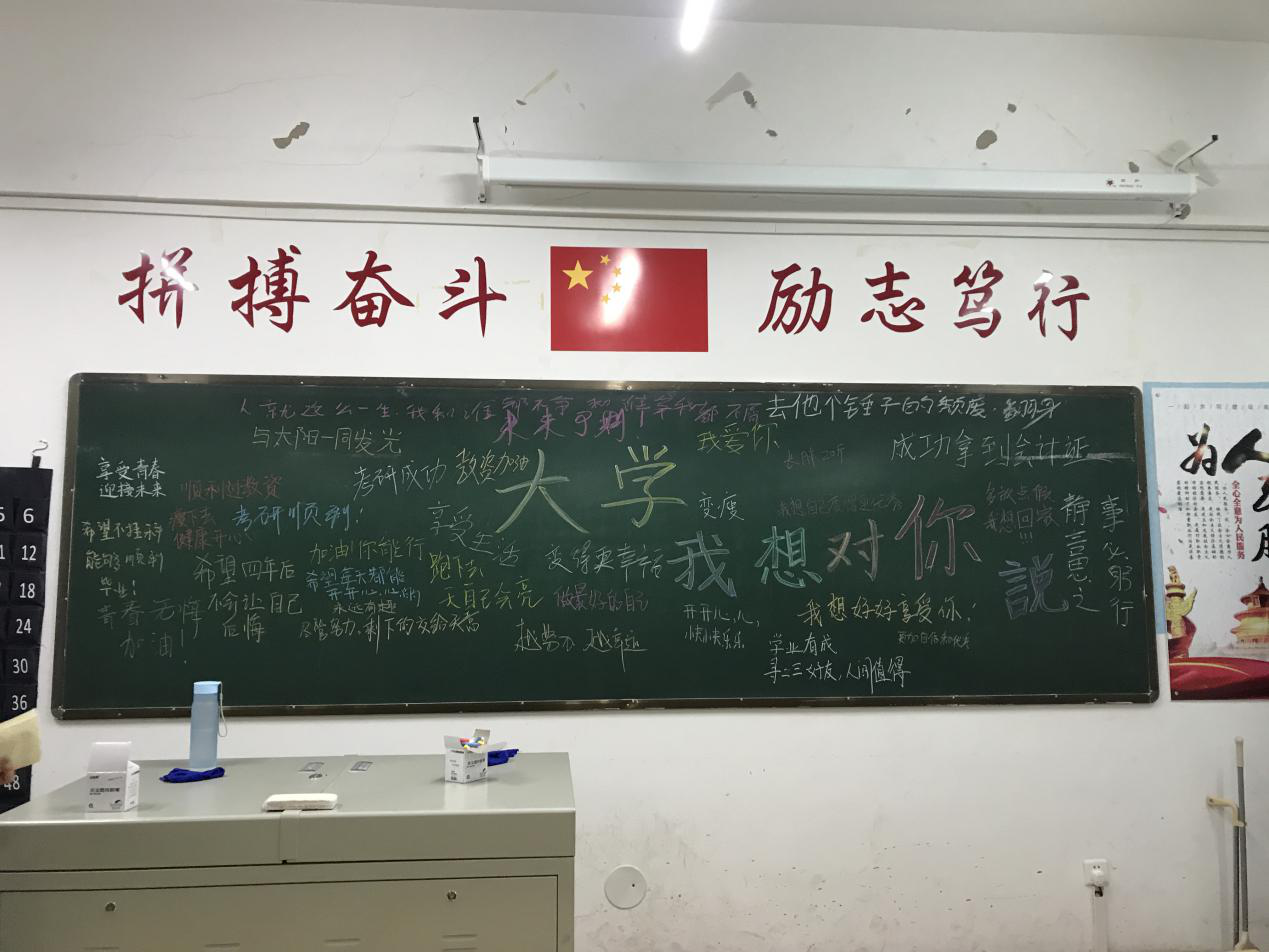 拼搏奋斗
励志笃行
人就这么一生,我和谁都不争 和谁争我都不屑
未来可期!
去他个锤子的额度
与太阳一同发光
我爱你
成功拿到会计证
享受青春
迎接未来
顺利过教资
考研成功
教资加油
大学
变瘦
我想对你説
多放点假
我想回家!!!
静言思之
事必躬行
瘦下去
健康开心
考研顺利!
享受
生活
希望不挂科
能够顺利
毕业!
希望四年后
不让自己
后悔
加油!你能行
希望每天都能
开开心心的
永远有趣
跑下去
天自己会亮
变得更幸福
做最好的自己
青春无悔
加油!
尽管努力,剩下的交给天意
越努力 越幸运
开开心心,
快快乐乐
我想好好享受你!
更加自信和优秀
学业有成
寻二三好友,人间值得
为人民服
全心全意为人民服务
5 6
12
18
24
30
36
48